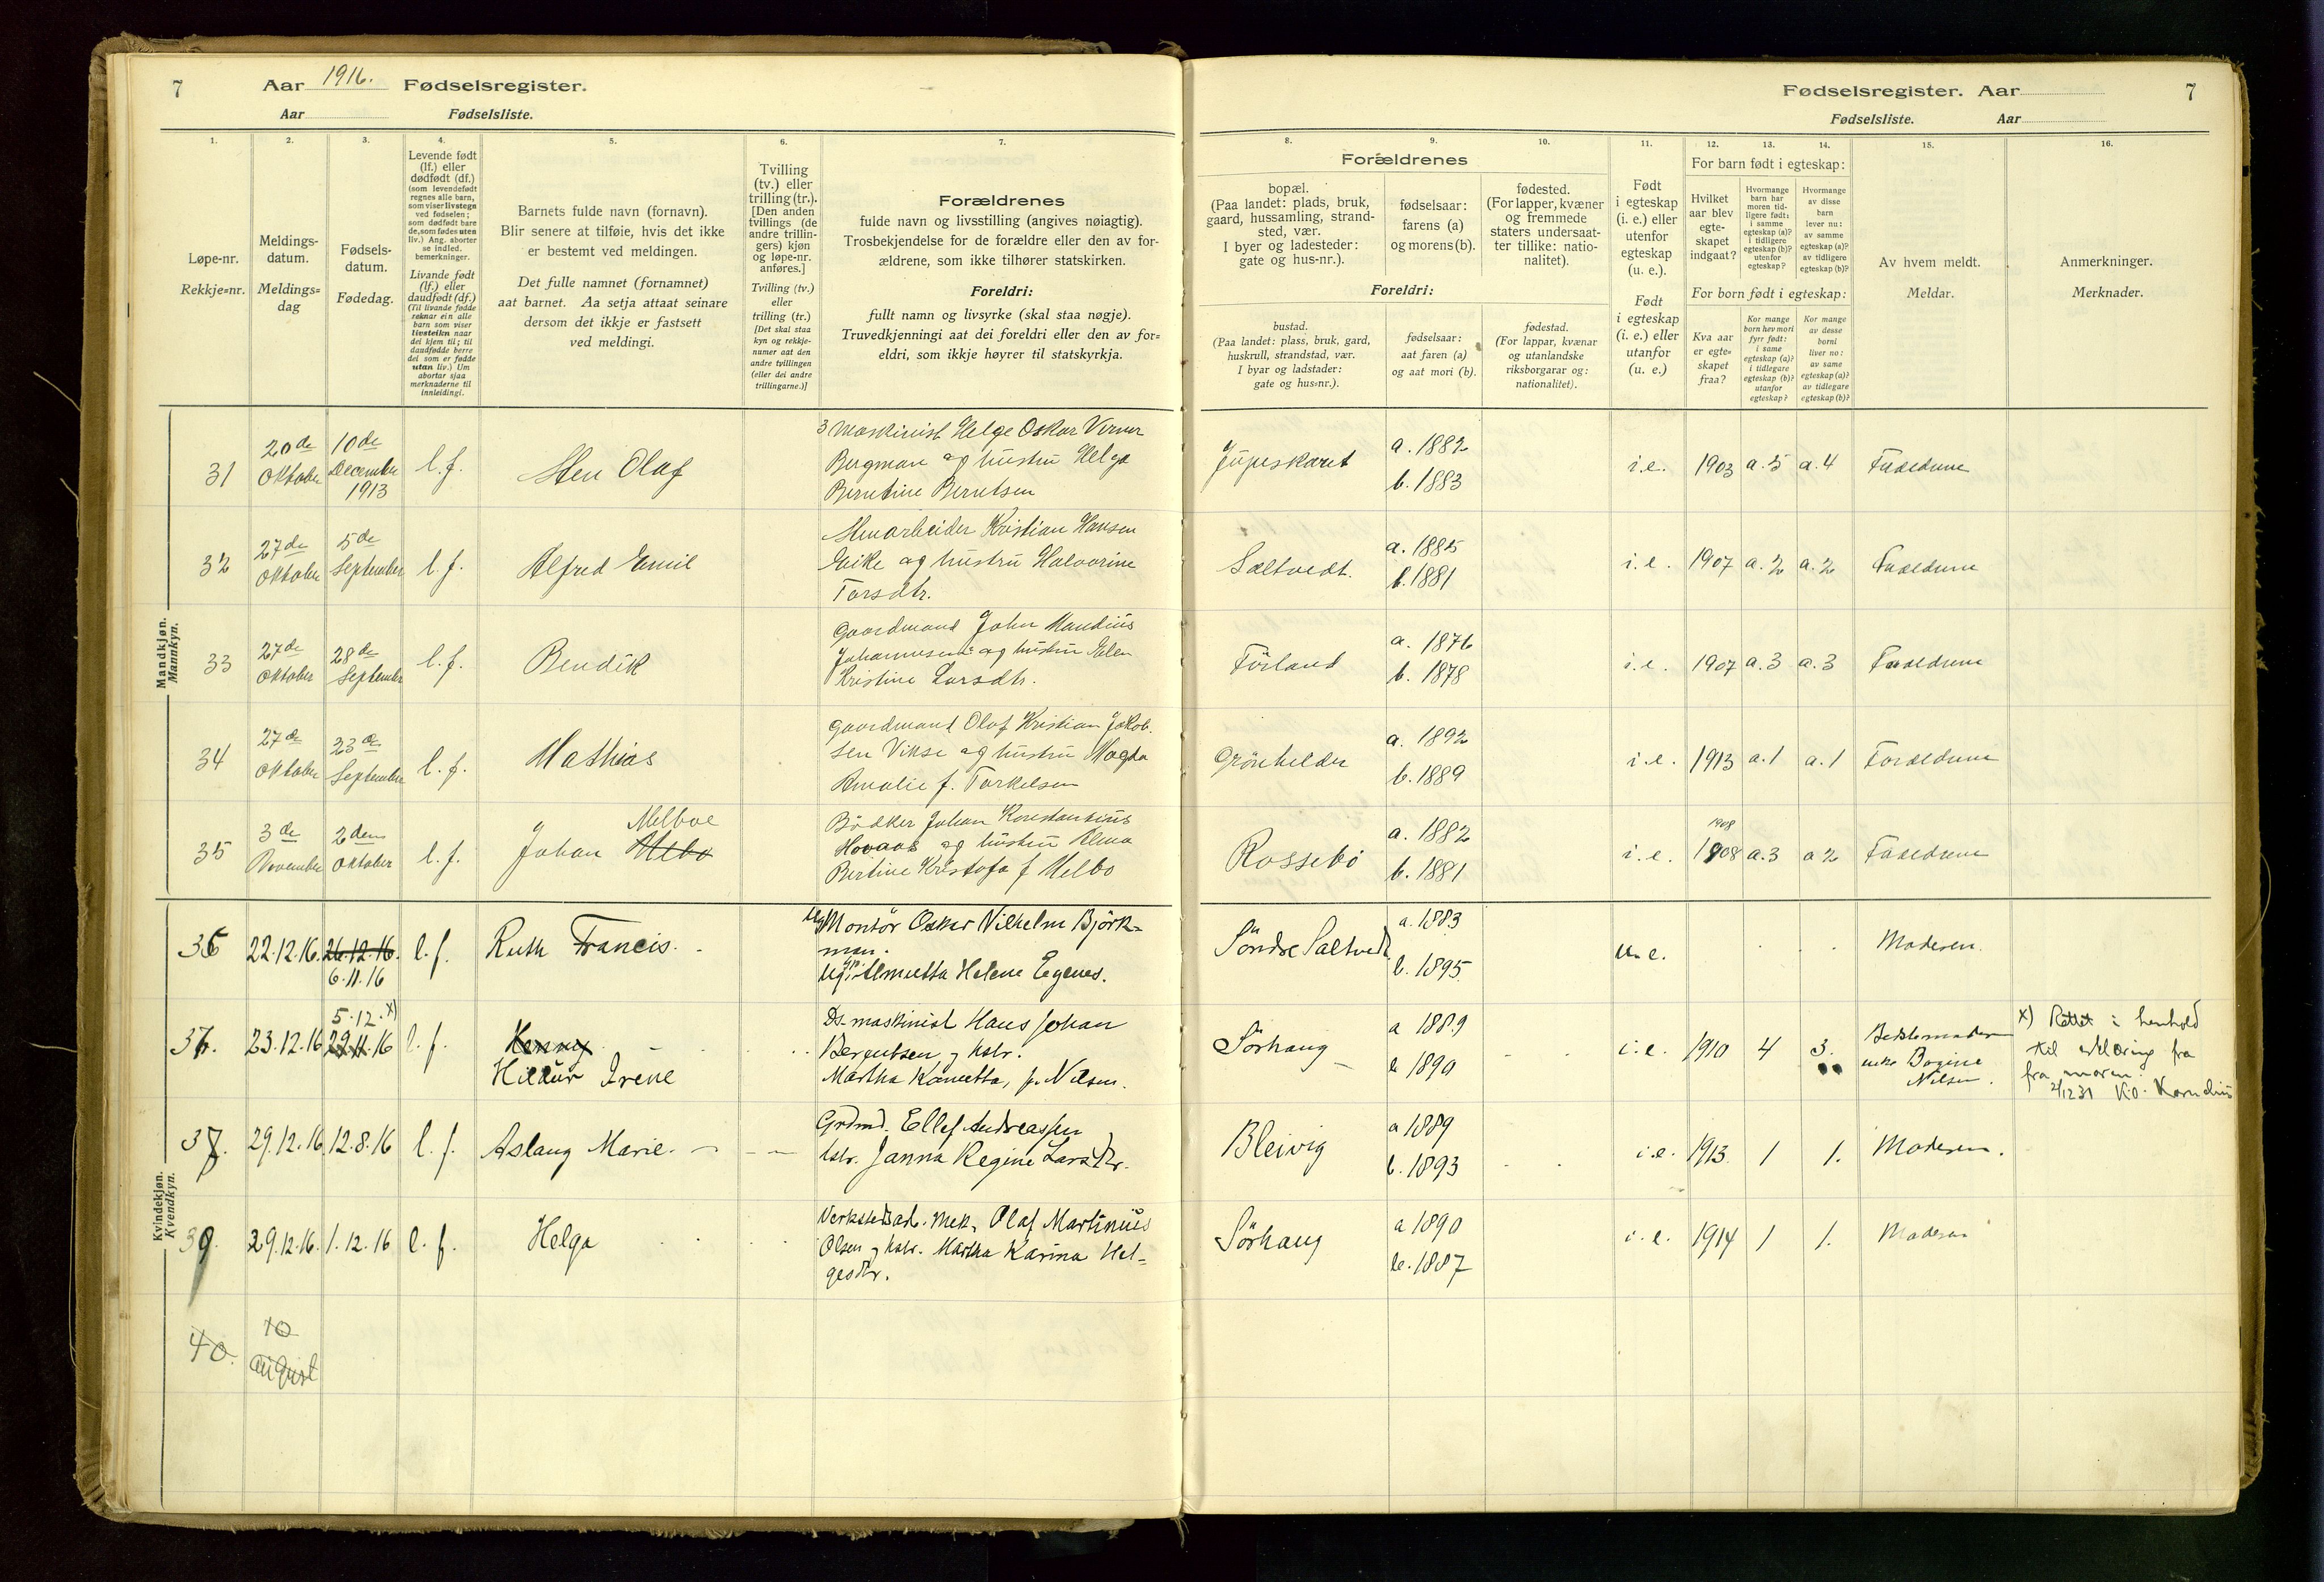 7 Aar 1916. Fødselsregister.
Aar Fødselsliste.
Fødselsregister. Aar 7
Fødselsliste. Aar
1. 2. 3. 4. 5. 6. 7.
Løpe-nr.
Rekkje=nr.
Meldings-
datum.
Meldings=
dag
Fødsels-
datum.
Fødedag.
Levende født
(lf.) eller
dødfødt (df.)
(som levendefødt
regnes alle barn,
som viser livstegn
ved fødselen;
som dødfødt bare
de, som fødes uten
liv.) Ang. aborter
se indled.
bemerkninger.
Livande født
(lf.) eller
daudfødt (df.)
(Til livande fødde
reknar ein alle
barn som viser
livsteikn naar
dei kjem til; til
daudfødde berre
dei som er fødde
utan liv.) Um
abortar sjaa
merknaderne til
innleidingi.
Barnets fulde navn (fornavn).
Blir senere at tilføie, hvis det ikke
er bestemt ved meldingen.
Det fulle namnet (fornamnet)
aat barnet. Aa setja attaat seinare
dersom det ikkje er fastsett
ved meldingi.
Tvilling
(tv.) eller
trilling (tr.).
[Den anden
tvillings (de
andre trillin-
gers) kjøn
og løpe-nr.
anføres.]
Tvilling (tv.)
eller
trilling (tr.)
[Det skal staa
kyn og rekkje-
numer aat den
andre tvillingen
(eller dei andre
trillingarne.)]
Forældrenes
fulde navn og livsstilling (angives nøiagtig).
Trosbekjendelse for de forældre eller den av for-
ældrene, som ikke tilhører statskirken.
Foreldri:
fullt namn og livsyrke (skal staa nøgje).
Truvedkjenningi aat dei foreldri eller den av for=
eldri, som ikkje høyrer til statskyrkja.
8. 9. 10. 11. 12. 13. 14. 15. 16.
Forældrenes
bopæl.
(Paa landet: plads, bruk,
gaard, hussamling, strand-
sted, vær.
I byer og ladesteder:
gate og hus-nr.).
fødselsaar:
farens (a)
og morens (b).
fødested.
(For lapper, kvæner
og fremmede
staters undersaat-
ter tillike: natio-
nalitet).
Foreldri:
bustad.
(Paa landet: plass, bruk, gard,
huskrull, strandstad, vær.
I byar og ladstader:
gate og hus=nr.).
fødselsaar:
aat faren (a)
og aat mori (b).
fødestad.
(For lappar, kvænar
og utanlandske
riksborgarar og:
nationalitet).
Født
i egteskap
(i. e.) eller
utenfor
egteskap
(u. e.).
Født
i egteskap
(i. e.) eller
utanfor
(u. e.)
For barn født i egteskap:
Hvilket
aar blev
egte-
skapet
indgaat?
Hvormange
barn har
moren tid-
ligere født:
i samme
egteskap (a)?
i tidligere
egteskap (b)?
utenfor
egteskap?
Hvormange
av disse
barn
lever nu:
av samme
egteskap (a)?
av tidligere
egteskap (b)?
For born født i egteskap:
Kva aar
er egte=
skapet
fraa?
Kor mange
born hev mori
fyrr født:
i same
egteskap (a)?
i tidlegare
egteskap (b)?
utanfor
egteskap?
Kor mange
av desse
borni
liver no:
av same
egteskap (a)?
av tidlegare
egteskap (b)?
Av hvem meldt.
Meldar.
Anmerkninger.
Merknader.
Mandkjøn.
Mannkyn.
31 20de Oktober 10de December 1913 l.f. Sten Olaf
3 Maskinist Helge Oskar Verner
Bergman og hustru Helga
Berntine Berntsen
a. 1882
b. 1883
i.e. 1903 a.5 a.4 Forældrene
32 27de Oktober 5de September l.f. Alfred Emil
Stenarbeider Kristian Hansen
Eike og hustru Halvorine
Torsdtr.
Saltvedt. a. 1885
b. 1881
i.e. 1907 a.2 a.2 Forældrene
33 27de Oktober 28de September l.f. Bendik
Gaardmand John Mandius
Johannesen og hustru Elen
Kristine Larsdtr.
Förland a. 1876
b. 1878
i.e. 1907 a.3 a.3 Forældrene
34 27de Oktober 23de September l.f. Mathias
Gaardmand Olaf Kristian Jakob-
sen Vikse og hustru Magda
Amalie f. Torkelsen
Grönhelder a. 1892
b. 1889
i.e. 1913 a.1 a.1 Forældrene
35 3de November 2den Oktober l.f. Johan Melboe Mebo
Bödker Johan Konstantinus
Hovaas og hustru Alma
Bertine Kristofa f Melbo
Rossebö a. 1882
b. 1881
i.e. 1908 1908 a.3 a 2 Forældrene
Kvindekjøn.
Kvendkyn.
36 22.12.16. 26.12.16. 6.11.16 l.f. Ruth Francis.
Ug Montör Oskar Vilhelm Björk-
man.
Ug. p. Almutta Helene Egenes.
Söndre Saltvedt a. 1883
b. 1895
u.e. Moderen.
37. 23.12.16 5.12. x) 29.11.16 l.f. Kenny
Hildur Irene
Ds. maskinist Hans Johan
Berentsen og hstr.
Martha Kornetta, f. Nilsen.
Sörhaug a 1889
b 1890
i.e. 1910 4 3. Bedstemoderen
enke Bogine
Nilsen.
x) Rettet i henhold
til erklæring fra
fra moren.
2/12 31 K.O. Kornelius
37. 29.12.16 12.8.16 l.f. Aslaug Marie.
Grdmd. Ellef Andreassen
hstr. Janna Regine Larsdtr.
Bleivig a 1889
b. 1893
i.e. 1913. 1 1. Moderen.
39. 29.12.16. 1.12.16 l.f. Helga
Verkstedsarb. mek. Olaf Martinius
Olsen og hstr. Martha Karina Hel-
gesdtr.
Sörhaug a 1890
b. 1887
i.e. 1914 1 1. Moderen
40. 10
august